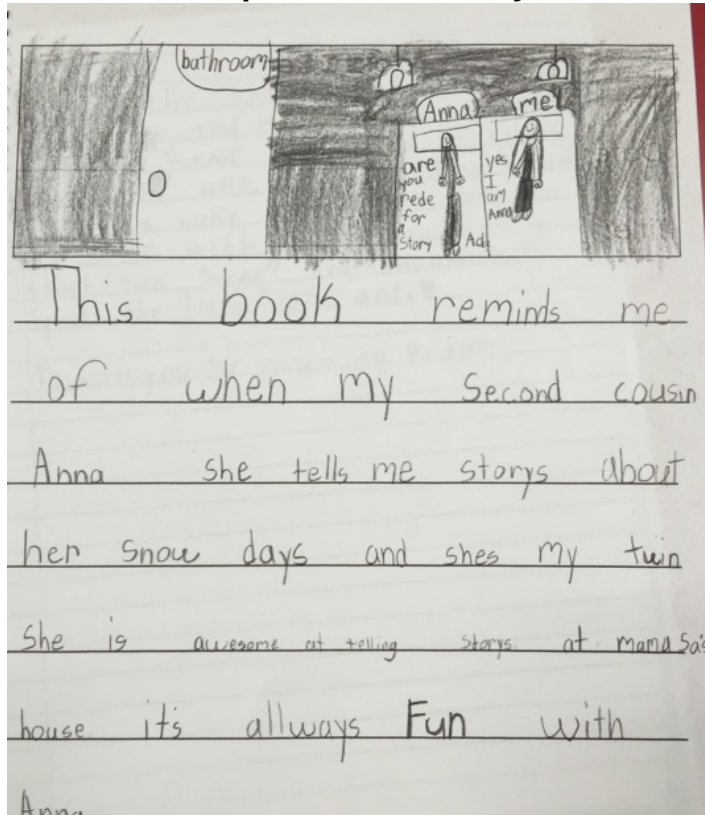 bathroom
Anna
me
are
you
rede
for
a
Story
yes
I
am
Anna
This book reminds me
of when my Second cousin
Anna she tells me storys about
her Snow days and shes my twin
She is awesome at telling storys. at mama Sa's
house. it's allways Fun with
Anna